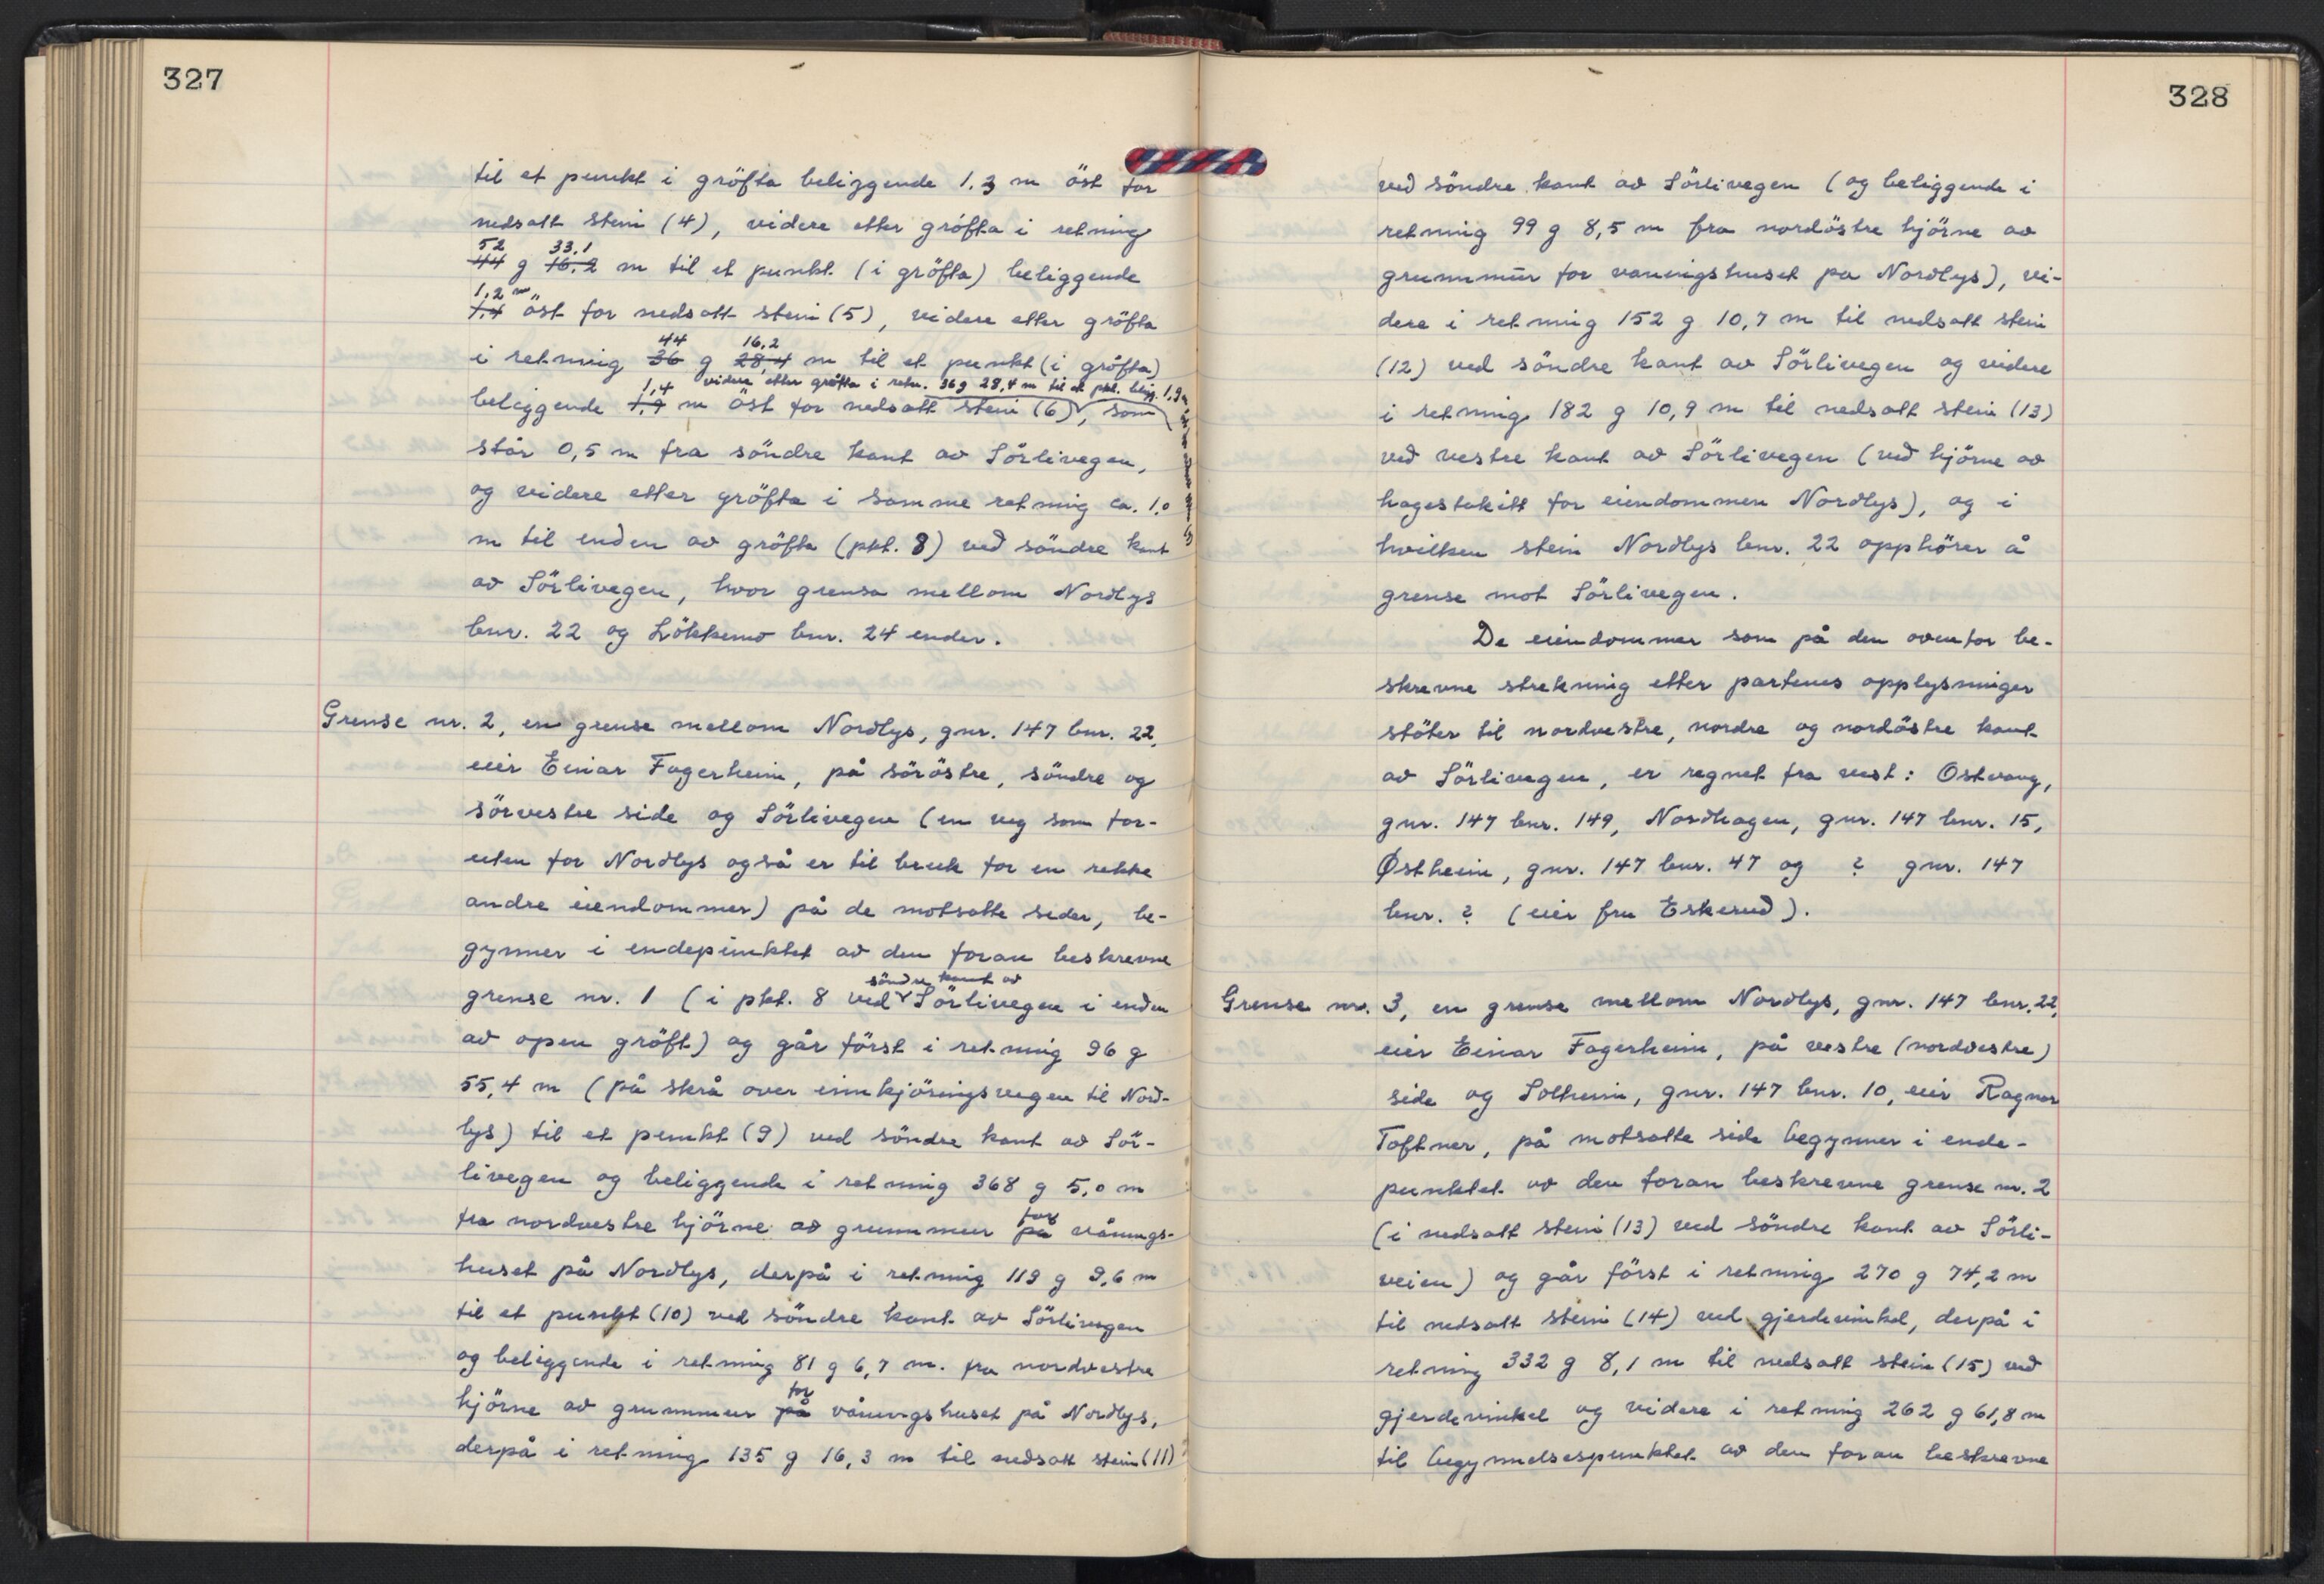 327
til et punkt i gröfta beliggende 1.3 m öst for
nedsatt stein (4), videre etter gröfta i retning
52 33.1
44 g 16,2 m til et punkt (i gröfta) beliggende
1,2 m
1,4 öst for nedsatt stein (5), videre etter gröfta
44 16,2
i retning 36 g 28,4 m til et punkt (i gröfta)
1,4 videre etter gröfta i retn. 36 g 28,4 m til et pkt. beligg. 1,9 m
beliggende 1,9 m öst for nedsatt stein (6), som
står 0,5 m fra söndre kant av Sörlivegen,
og videre etter gröfta i samme retning ca. 1.0
m til enden av gröfta (pkt. 8) ved söndre kant
av Sörlivegen, hvor grensa mellom Nordlys
bnr. 22 og Lökkemo bnr. 24 ender.
Grense nr. 2, en grense mellom Nordlys, gnr. 147 bnr. 22,
eier Einar Fagerheim, på söröstre, söndre og
sörvestre side og Sörlivegen (en veg som for-
uten for Nordlys også er til bruk for en rekke
andre eiendommer) på de motsatte sider, be-
gynner i endepunktet av den foran beskrevne
söndre kant av
grense nr. 1 (i pkt. 8 ved Sörlivegen i enden
av open gröft) og går först i retning 96 g
55,4 m (på skrå over innkjöringsvegen til Nord-
lys) til et punkt (9) ved söndre kant av Sör-
livegen og beliggende i retning 368 g 5,0 m
for
fra nordvestre hjörne av grunnmur på vånings-
huset på Nordlys, derpå i retning 119 g 9,6 m
til et punkt (10) ved söndre kant av Sörlivegen
og beliggende i retning 81 g 6,7 m. fra nordvestre
for
hjörne av grunnmur på våningshuset på Nordlys,
derpå i retning 135 g 16,3 m til nedsatt stein (11)
328
ved söndre kant av Sörlivegen (og beliggende i
retning 99 g 8,5 m fra nordöstre hjörne av
grunnmur for vaningshuset pa Nordlys), vi-
dere i retning 152 g 10,7 m til nedsatt stein
(12) ved söndre kant av Sörlivegen og videre
i retning 182 g 10,9 m til nedsatt stein (13)
ved vestre kant av Sörlivegen (ved hjörne av
hagestakitt for eiendommen Nordlys), og i
hvilken stein Nordlys bnr. 22 opphörer å
grense mot Sörlivegen.
De eiendommer som på den ovenfor be-
skrevne strekning etter partenes opplysninger
stöter til nordvestre, nordre og nordöstre kant
av Sörlivegen, er regnet fra vest: Ostvang,
gnr. 147 bnr. 149, Nordhagen, gnr. 147 bnr. 15,
Østheim, gnr. 147 bnr. 47 og ? gnr. 147
bnr. ? (eier fru Eskerud).
Grense nr. 3, en grense mellom Nordlys, gnr. 147 bnr. 22,
eier Einar Fagerheim, på vestre (nordvestre)
side og Solheim, gnr. 147 bnr. 10, eier Ragnar
Toftner, på motsatte side begynner i ende-
punktet av den foran beskrevne grense nr. 2
(i nedsatt stein (13) ved söndre kant av Sörli-
veien) og går först i retning 270 g 74,2 m
til nedsatt stein (14) ved gjerdevinkel, derpå i
retning 332 g 8,1 m til nedsatt stein (15) ved
gjerdevinkel og videre i retning 262 g 61,8 m
til begynnelsespunktet av den foran beskrevne